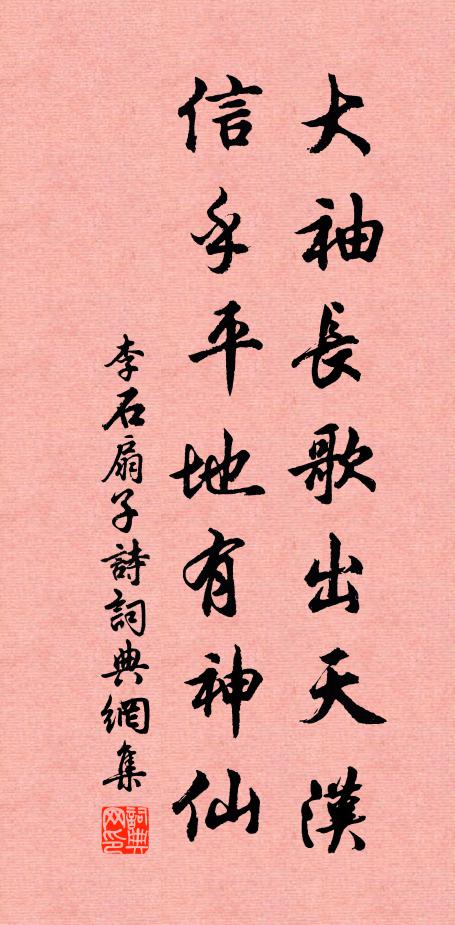 大袖長歌出天漢
信乎平地有神仙
李石扇子詩詞典網集
詞典网印